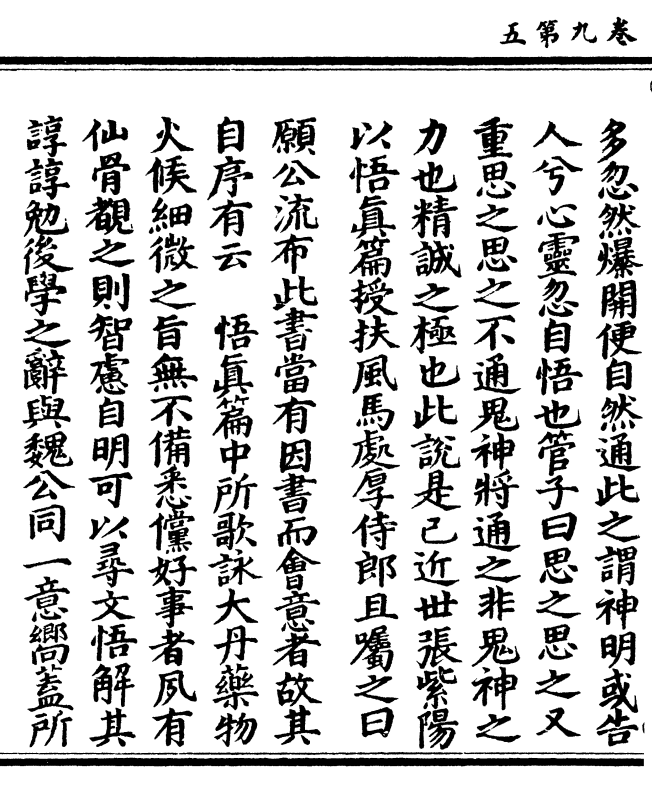 卷九第五
多忽然爆開便自然通此之謂神明或告
人兮心靈忽自悟也管子曰思之思之又
重思之思之不通鬼神將通之非鬼神之
力也精誠之極也此說是已近世張紫陽
以悟眞篇授扶風馬處厚侍郎且囑之曰
願公流布此書當有因書而會意者故其
自序有云　悟眞篇中所歌詠大丹藥物
火候細微之旨無不備悉儻好事者夙有
仙骨覩之則智慮自明可以尋文悟解其
諄諄勉後學之辭與魏公同一意嚮蓋所